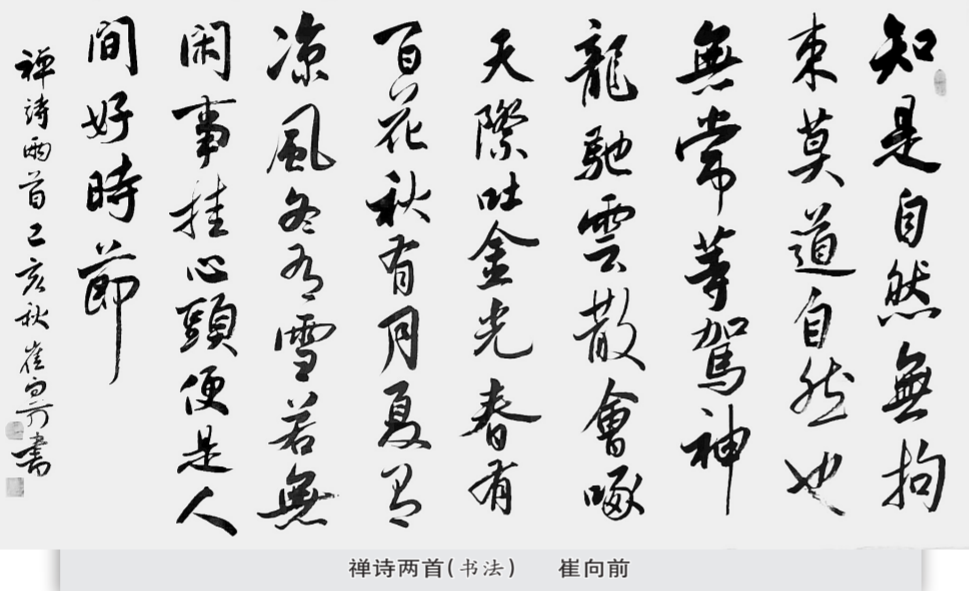 知是自然無拘
束莫道自然也
無常等駕神
龍馳雲散會啄
天際吐金光春有
百花秋有月夏有
凉風冬有雪若無
閑事挂心頭便是人
間好時節
禪詩兩首己亥秋崔向前書
禅诗两首(书法) 崔向前